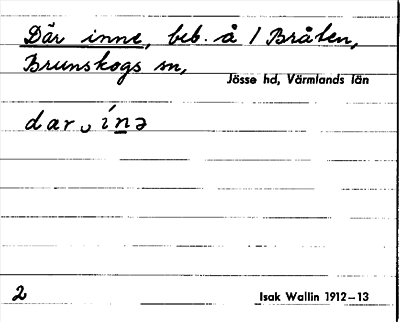 Där inne, beb. å 1 Bråten,
Brunskogs sn,
Jösse hd, Värmlands län
dar ᴗ ínə
2
Isak Wallin 1912–13